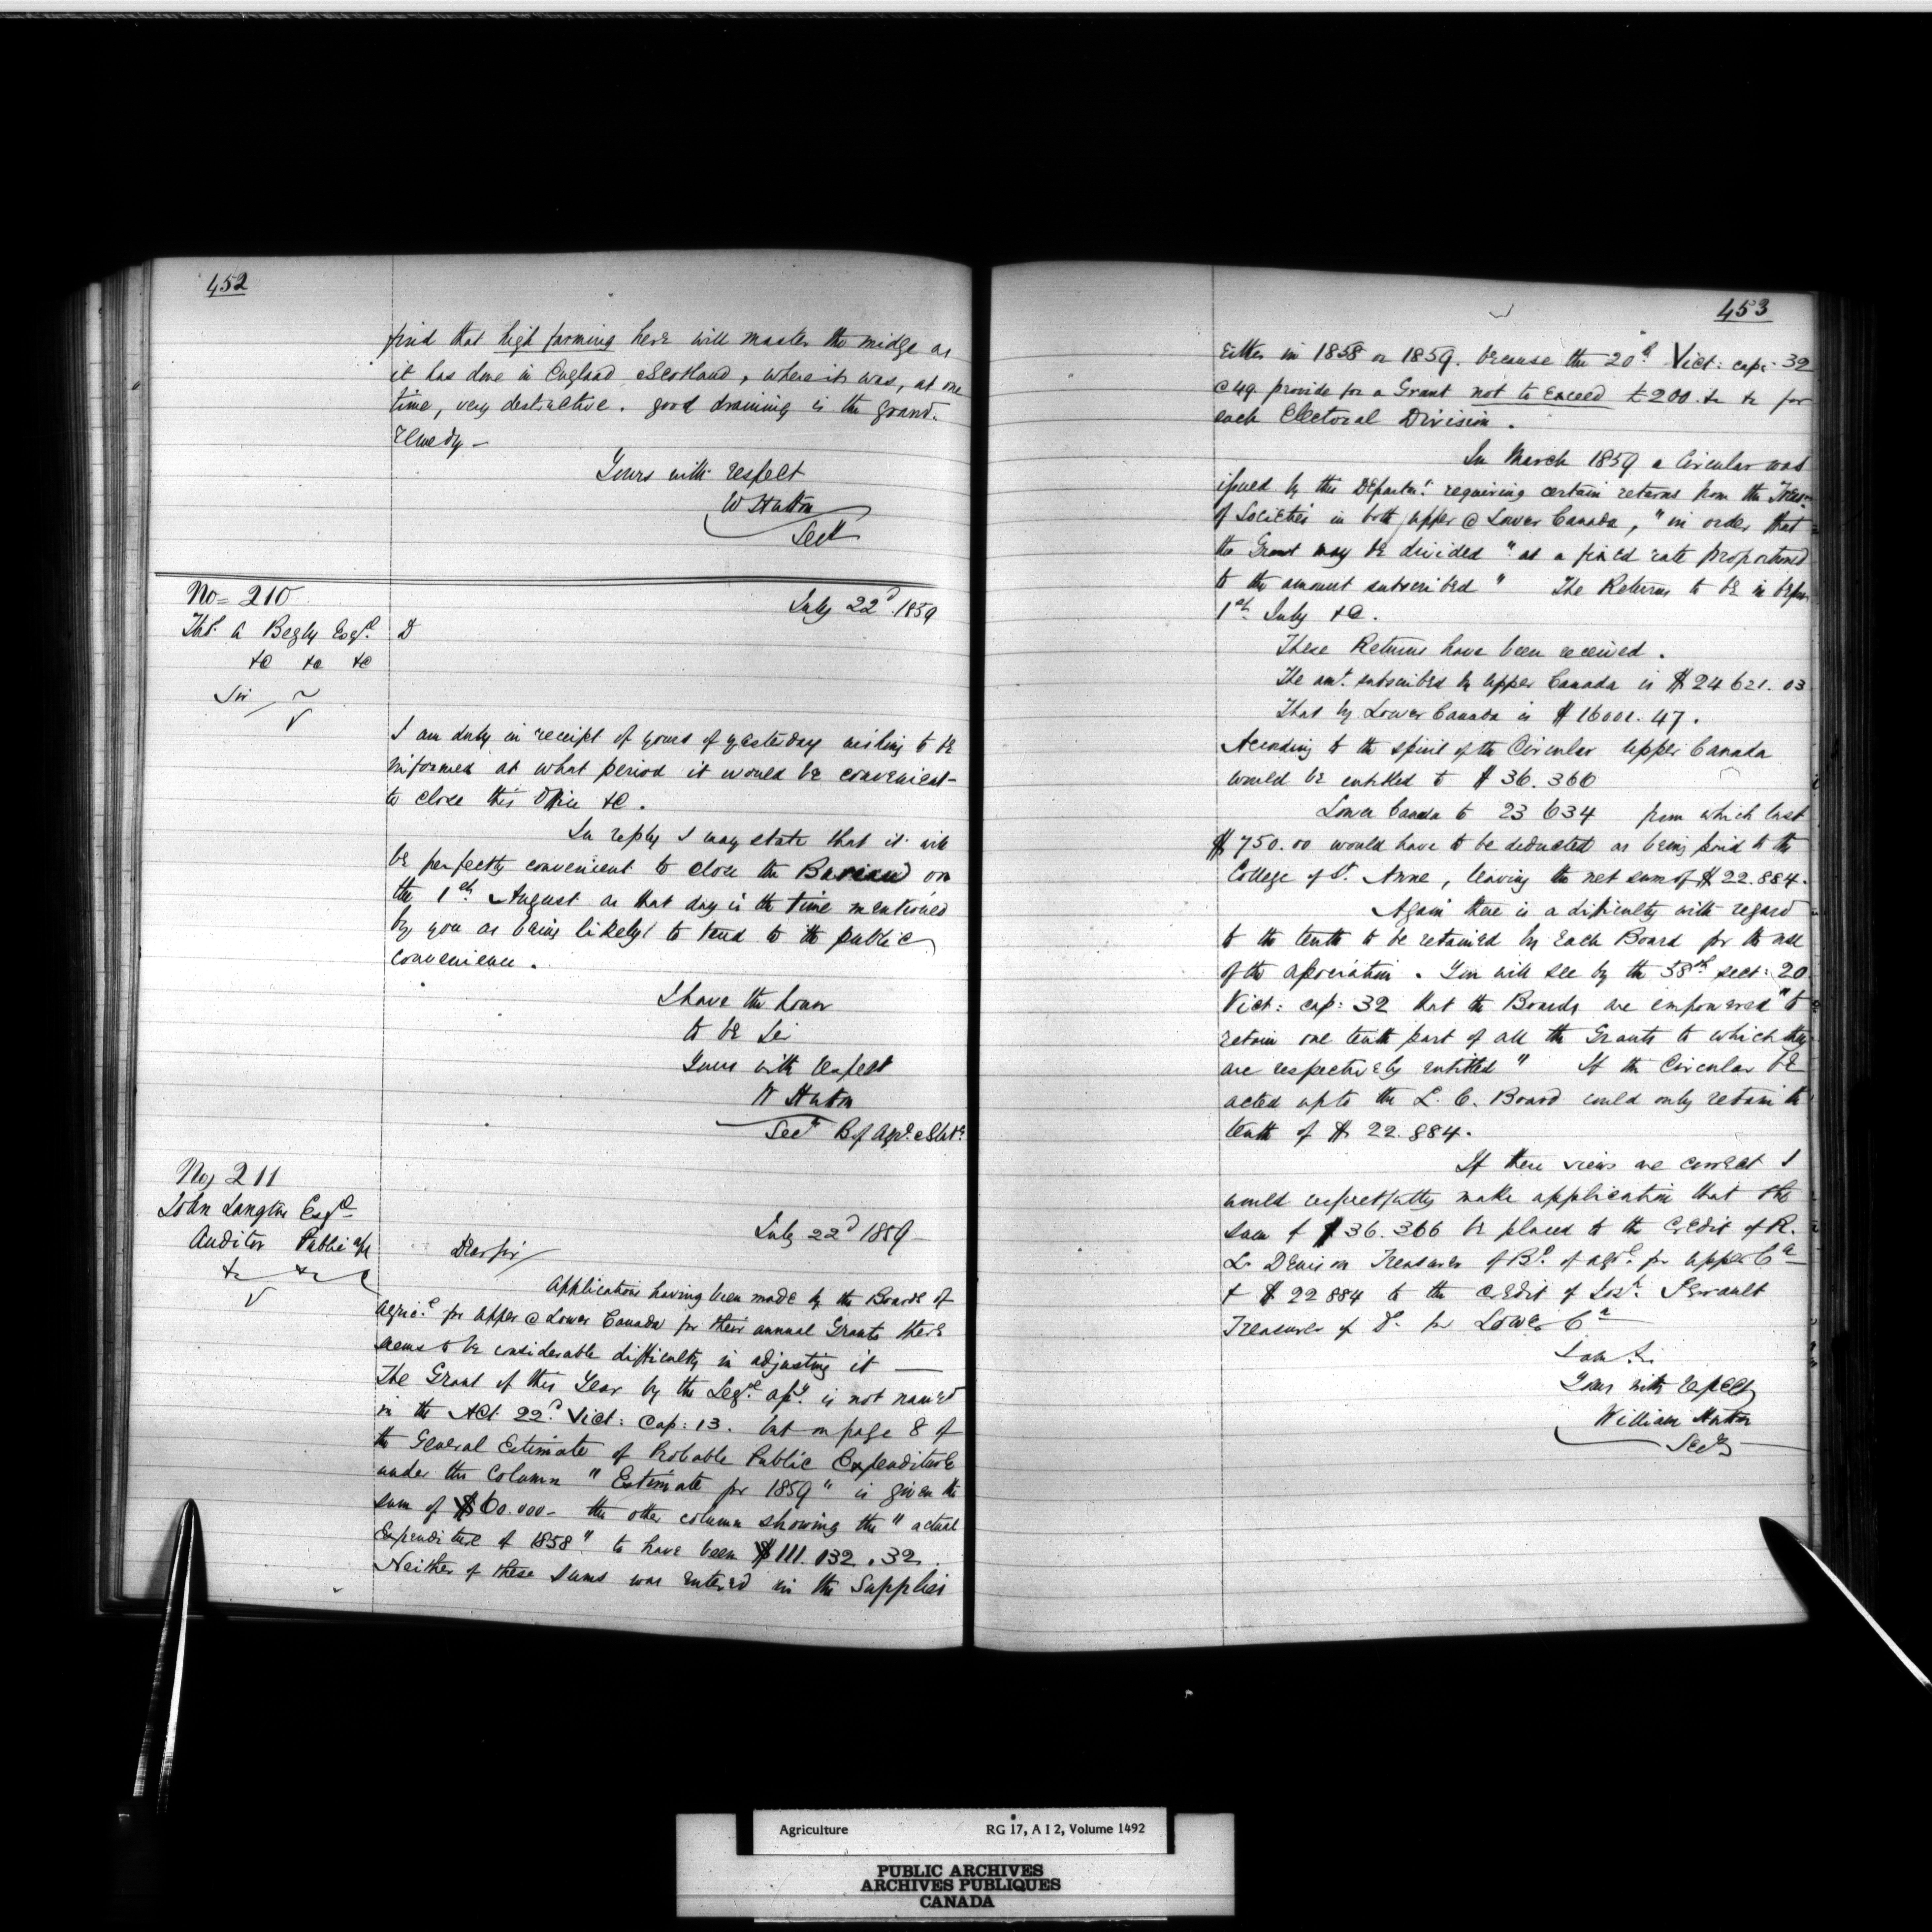 452
find that high farming here will master the midge as
it has done in England & Scotland, where it was, at one
time, very destructive. good draining is the grand
remedy -
Yours with respect
W Hutton
Secy
No= 210
July 22d 1859
Thos. A Begly Esqre
&c &c &c
Sir
I am duly in receipt of yours of yesterday wishing to be
informed at what period it would be convenient
to close this Office &c.
In reply I may state that it will
be perfectly convenient to close the Bureau on
the 1st August as that day is the time mentioned
by you as being likely to tend to the public
convenience.
I have the honor
to be Sir
Yours with respect
W Hutton
Secy B of Agre & Stats
No, 211
John Langton Esqre
July 22d 1859
Auditor Public a/cs
Dear Sir
&c &c
Applications having been made by the Boards of
Agrice for Upper & Lower Canada for their annual Grants there
seems to be considerable difficulty in adjusting it —
The Grant of this Year by the Lege Asy. is not named
in the Act 22d Vict: Cap: 13. but on page 8 of
the General Estimate of Probable Public Expenditure
under the Column "Estimate for 1859" is given the
sum of $60.000- the other column showing the "actual
Expenditure of 1858" to have been $111.032.32.
Neither of these sums was entered in the Supplies
453
either in 1858 or 1859. because the 20th Vict: cap: 32
C 49 provide for a Grant not to exceed £200. &c &c for
each Electoral Division.
In March 1859 a Circular was
issued by this Departmt. requiring certain returns from the Treasrs
of Societies in both Upper & Lower Canada, "in order that
the Grant may be divided "at a fixed rate proportioned
to the amount subscribed" The Returns to be in before
1st. July &c.
These Returns have been received.
The amt. subscribed by Upper Canada is $24621.03
That by Lower Canada is $16001.47.
According to the spirit of the Circular Upper Canada
would be entitled to $36.366
Lower Canada to 23634 from which last
$750.00 would have to be deducted as being paid to the
College of St. Anne, leaving the net sum of $22.884.
Again there is a difficulty with regard
to the tenth to be retained by each Board for the use
of the Association. You will see by the 58th sect: 20
Vict: cap: 32 that the Boards are empowered "to
retain one tenth part of all the Grants to which they
are respectively entitled" If the Circular be
acted upto the L. C. Board could only retain the
tenth of $22.884.
If these views are correct I
would respectfully make application that the
sum of $36.366 be placed to the Credit of R.
L. Denison Treasurer of Bd. of Agre. for Upper Ca
& $22884 to the credit of Josh. Perrault
Treasurer of Do. for Lower Ca
I am Sir
Yours with respect
William Hutton
Secy
Agriculture RG 17, A I 2, Volume 1492
PUBLIC ARCHIVES
ARCHIVES PUBLIQUES
CANADA